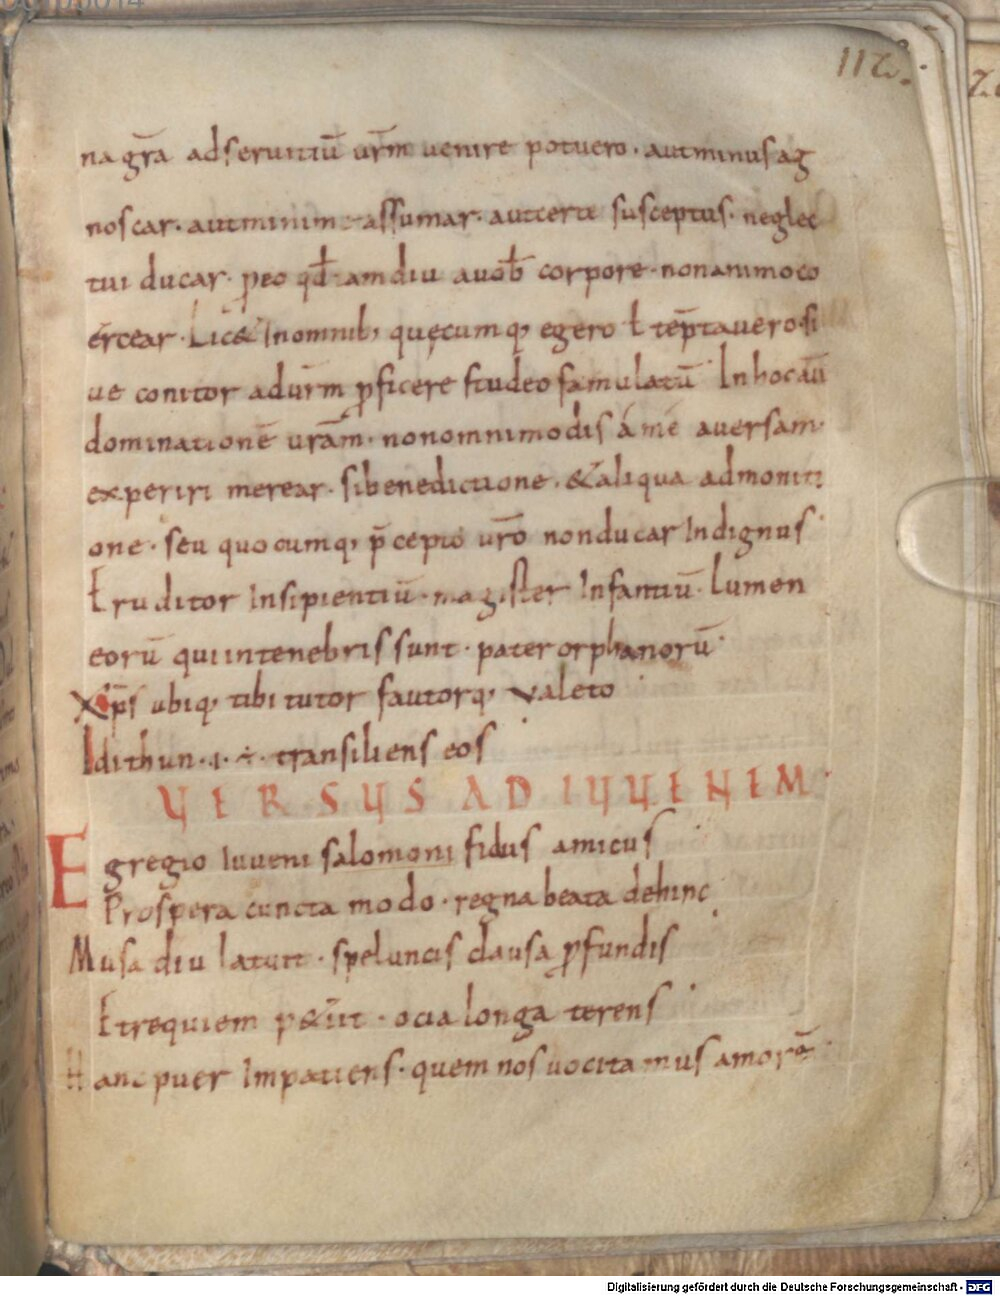 112.
na gr̄a adseruitiū ur̄m uenire potuero · autminusag
noscar · autminime assumar · autcerte susceptus · neglec
tui ducar · peo qd̄ tamdiu auob̄ corpore · nonanimoco
ercear · Lic& Inomnib; quęcumq; egero ł tēptauero · si
ue conitor adur̄m ꝓficere studeo famulatū · Inhocau
dominationē ur̄am · nonomnimodis á mé auersam ·
experiri merear · sibenedictione · &aliqua admoniti
one · seu quocumq; p̄cepto ur̄o nonducar Indignus
Eruditor Insipientiū · magister Infantiū · Lumen
eorū quiintenebris sunt · pater orphanorū
Xp̄s ubiq; tibi tutor fautorq; Valeto
Idithun · i · ÷ · transiliens eos
VERSUS AD IUUENEM ·
Egregio Iuueni salomoni fidus amicus
Prospera cuncta modo · regna beata dehinc
Musa diu latuit · speluncis clausa ꝓfundis
Etrequiem p&iit · ocia longa terens
Hanc puer Impatiens · quem nos uocitamus amorē
Digitalisierung gefördert durch die Deutsche Forschungsgemeinschaft - DFG